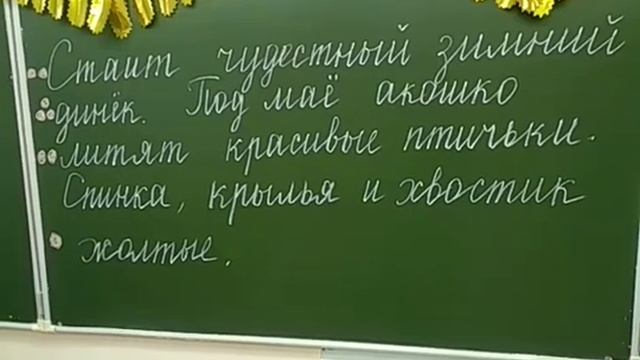 Стаит чудестный зимний
динёк. Под маё акошко
литят красивые птичьки.
Спинка, крылья и хвостик
жолтые.